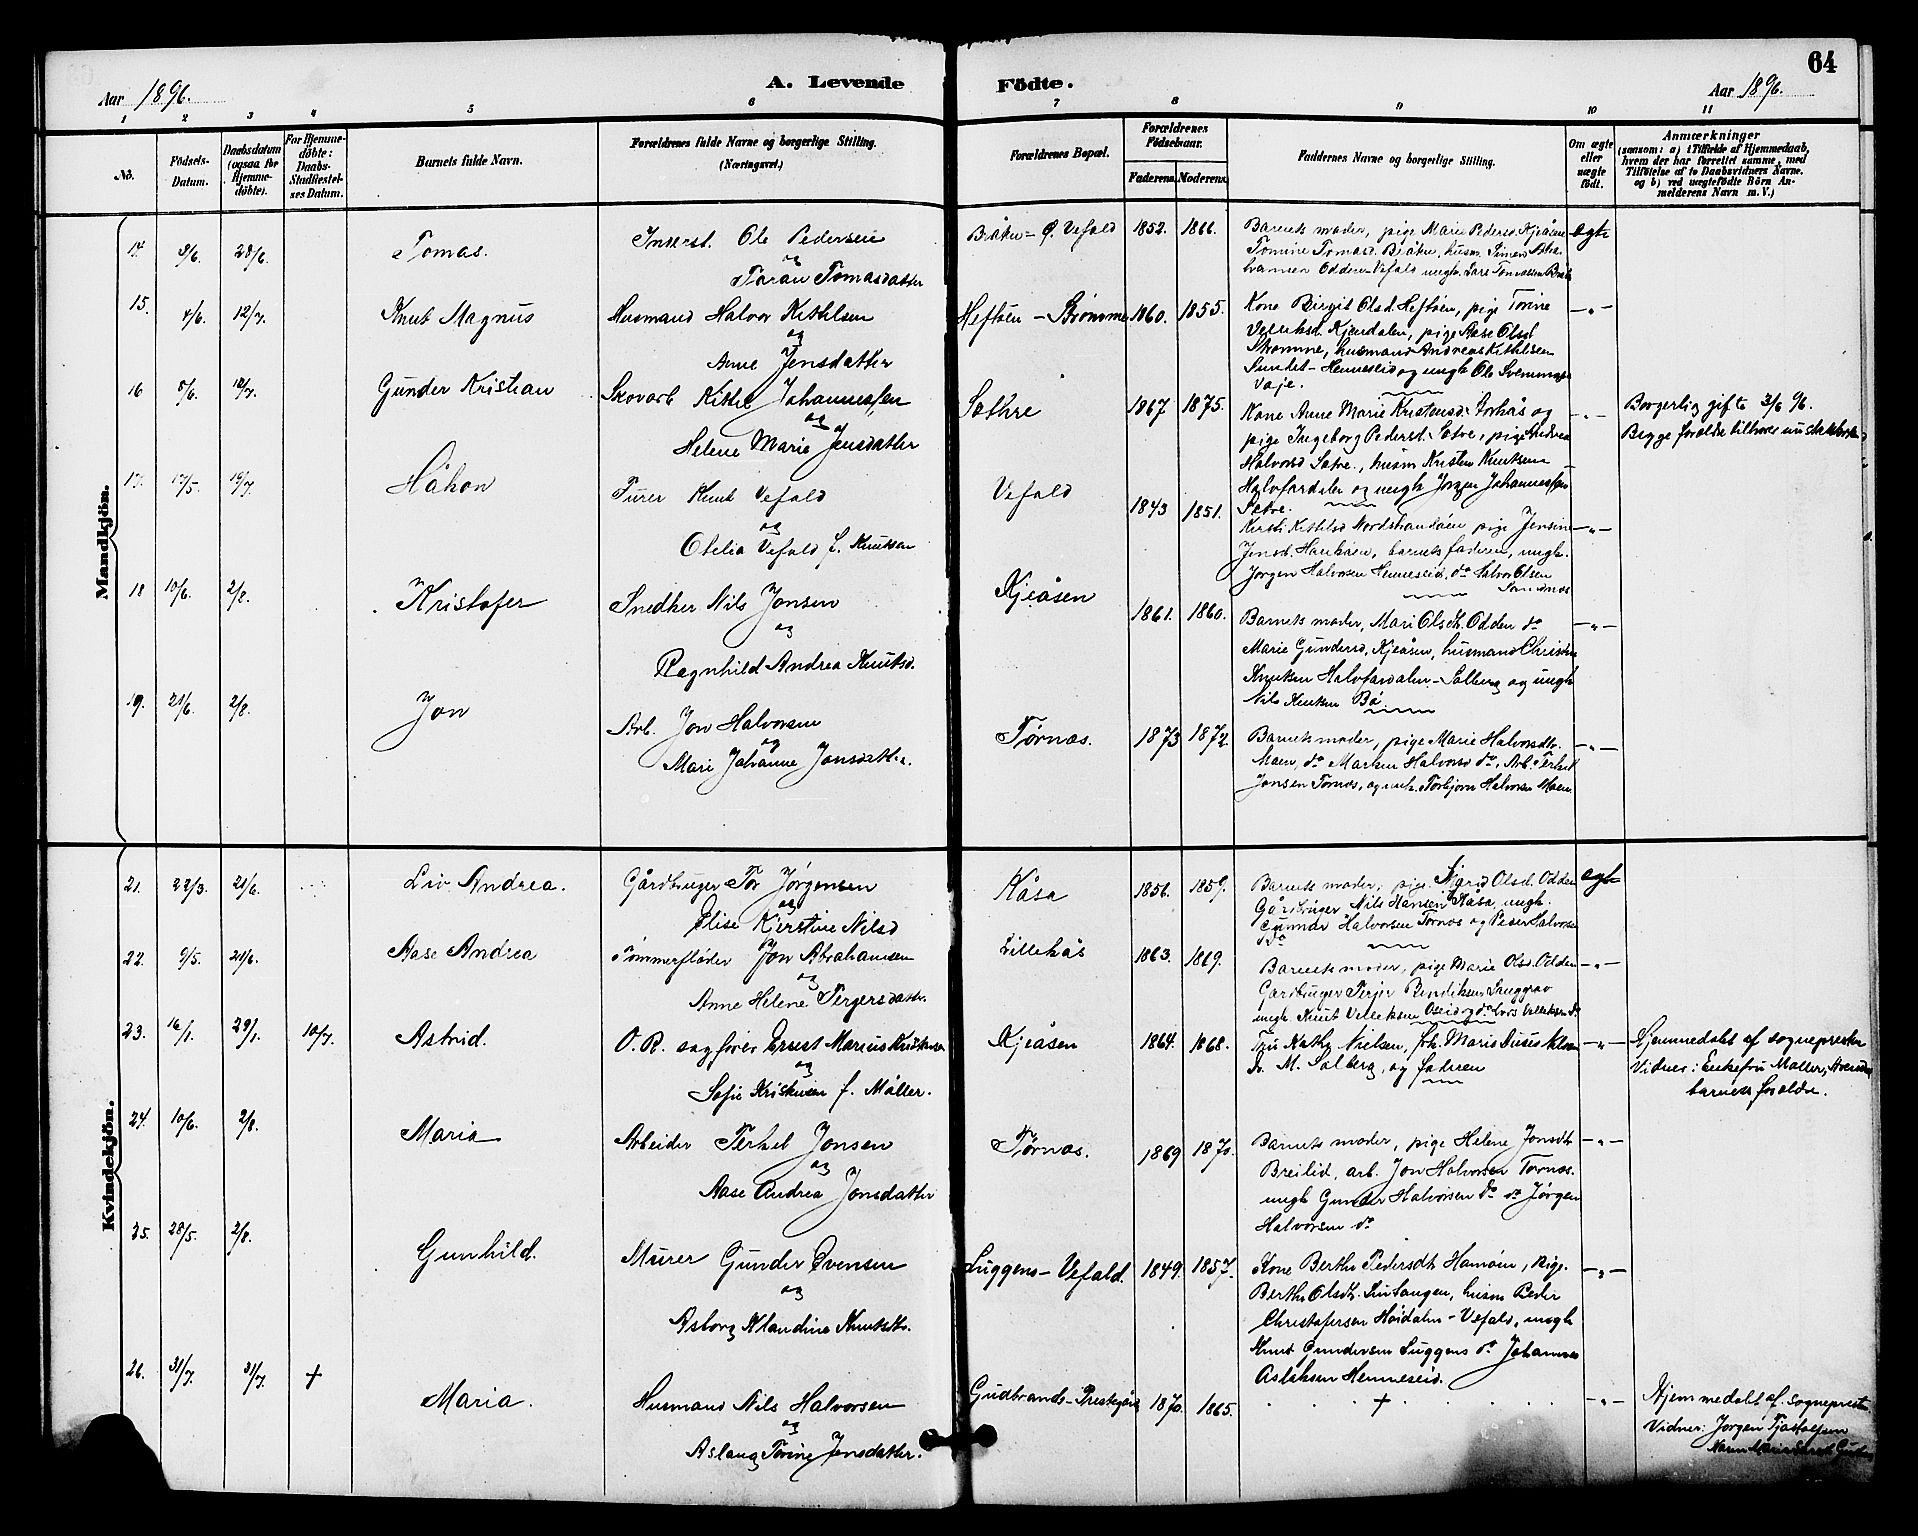 64
Aar 1896. A. Levende Födte. Aar 1896.
1 2 3 4 5 6 7 8 9 10 11
No. Födsels-Datum. Daabsdatum (ogsaa for Hjemmedöbte). For Hjemmedöbte: Daabs-Stadfæstelses Datum. Barnets fulde Navn. Forældrenes fulde Navne og borgerlige Stilling. (Næringsvei.) Forældrenes Bopæl. Forældrenes Födselsaar. Faderens. Moderens. Faddernes Navne og borgerlige Stilling. Om ægte eller uægte födt. Anmærkninger (saasom: a) i Tilfælde af Hjemmedaab, hvem der har forrettet samme, med Tilföielse af to Daabsvidners Navne. og b) ved uægtefödte Börn Anmelderens Navn m. V.)
Mandkjön.
28/6. Tomas. Ole Pedersen
og
Tomasdatter
Vefald 1852. 1866. Barnets moder, pige Marie Pedersd. Kjeåsen ægte
15. 4/6. 12/7. Knut Magnus Husmand Halvor Kittilsen
og
Anne Jensdatter
Heftøen - Strømme 1860. 1855. Kone Birgit Olsd. Heftøen, pige Torine
Kjendalen, pige Aase Olsd.
Strømme, husmand Andreas Kittilsen
Sundet - Henneseid og ungk. Ole
Vaje.
16 5/6. 12/7. Gunder Kristian Skovarb. Kittil Johannessen
og
Helene Marie Jensdatter
Sæthre 1867 1875. Kone Anne Marie Kristensd. og
pige Ingeborg Pedersd. pige Andrea
Halvorsd. Sætre., husm. Kristen Knutsen
Halvfardalen og ungk. Jørgen Johannessen
Sætre.
-"- Borgerlig gifte 3/6 96.
Begge forældre tilhører
17. 17/5. 19/7. Håkon Knut Vefald
og
Otelia Vefald f. Knutsen
Vefald 1843 1851. Kittilsd. Nordstrandøen pige Jensine
Jensd. barnets faderen, ungk.
Jørgen Halvorsen Henneseid, do Halvor Olsen
Sandnes
-"-
18 10/6. 2/8. Kristofer Snedker Nils Jonsen
og
Ragnhild Andrea Knutsd.
Kjeåsen 1861. 1860. Barnets moder, Mari Olsdt. Odden do
Marie Gundersd. Kjeåsen, husmand Christen
Knutsen Halvfardalen - Solberg og ungk.
Nils Knutsen Bø
-"-
19. 21/6. 2/8. Jon Arb. Jon Halvorsen
og
Mari Johanne Jonsdatter.
Tørnæs. 1873 1872. Barnets moder, pige Marie Halvorsdtr.
Moen, do Halvorsd. do, Arb. Terkel
Jonsen Tørnæs, og ungk. Torbjørn Halvorsen Moen
-"-
Kvindekjön.
21. 22/3. 21/6. Liv Andrea. Gårdbruger Tor Jørgensen
og
Elise Kjerstine Nilsd
Kåsa 1856. 1859. Barnets moder, pige Sigrid Olsd. Odden
Gårdbruger Nils Hansen Kåsa, ungk.
Gunnar Halvorsen Tørnæs og Peder Halvorsen
do
ægte
22. 9/5. 21/6. Aase Andrea Tømmerfløder Jon Abrahamsen
og
Anne Helene Tergersdatter.
Lillekås 1863. 1869. Barnets moder, pige Marie Olsd. Odden
Gårdbruger Terjer Bendiksen
ungk. Knut Velleksen Oseid og do Lars Velleksen do
-"-
23. 16/1. 29/1. 10/7. Astrid. O. R. sagfører Ernest Marius Kristensen
og
Sofie Kristensen f. Møller.
Kjeåsen 1864. 1868. Fru Kathr. Nielsen, frk. Maris
Dr. M. Solberg, og faderen
-"- Hjemmedøbt af sognepresten
Vidner: Enkefru Møller,
barnets forældre.
24. 10/6. 2/8. Maria Arbeider Terkel Jonsen
og
Aase Andrea Jonsdatter
Tørnæs. 1869 1870. Barnets moder, pige Helene Jonsdt.
Breilid, arb. Jon Halvorsen Tørnæs.
ungk Gunder Halvorsen do do Jørgen
Halvorsen do
-"-
25. 28/5. 2/8. Gunhild. Murer Gunder Evensen
og
Asborg Klandine Knutsdtr.
Luggens - Vefald. 1849. 1857. Kone Berthe Pedersdt Hamøen, pige.
Berthe Olsdt. husm. Peder
Christofersen Høidalen - Vefald, ungk
Knut Gundersen Luggens do Johannes
Aslaksen Henneseid.
-"-
26. 31/7. 31/7. + Maria. Husmand Nils Halvorsen
og
Aslaug Torine Jensdatter.
Gudbrands - Prestegård 1870. 1865. +
-"- Hjemmedøbt af sogneprest
Vidner: Jørgen